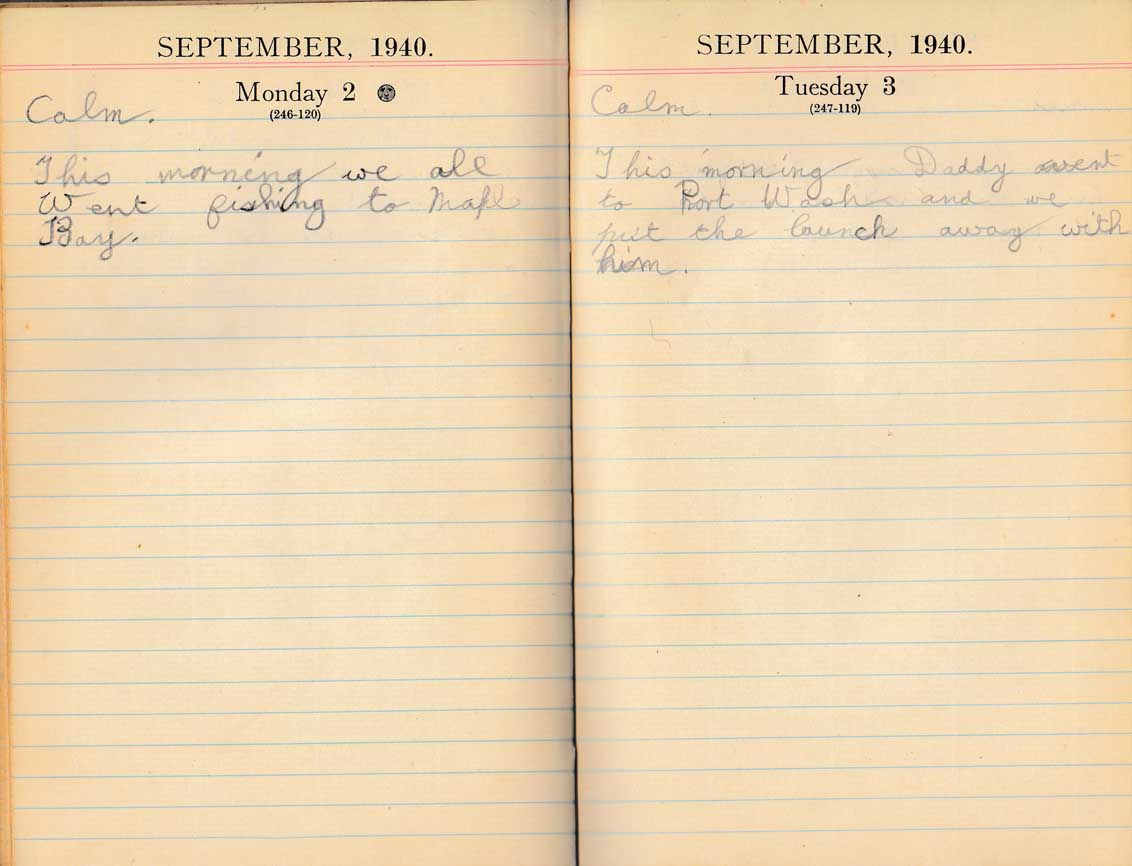 SEPTEMBER, 1940.
Monday 2
(246-120)
Calm.
This morning we all
Went fishing to Mapl
Bay.
SEPTEMBER, 1940.
Tuesday 3
(247-119)
Calm.
This morning Daddy went
to Port Wash and we
put the launch away with
him.